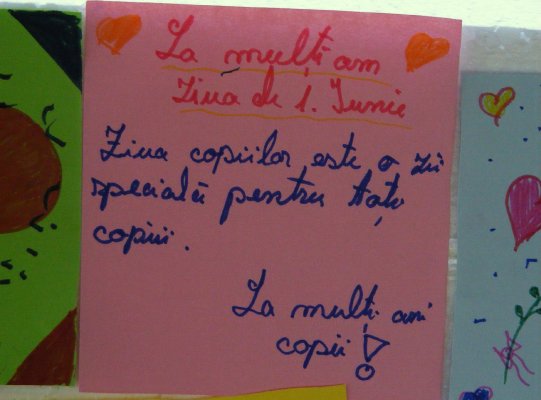 La mulți am
Ziua de 1. Iunie
Ziua copiilor este o zii
specială pentru toțu
copiii.
La mulți ani
copii!